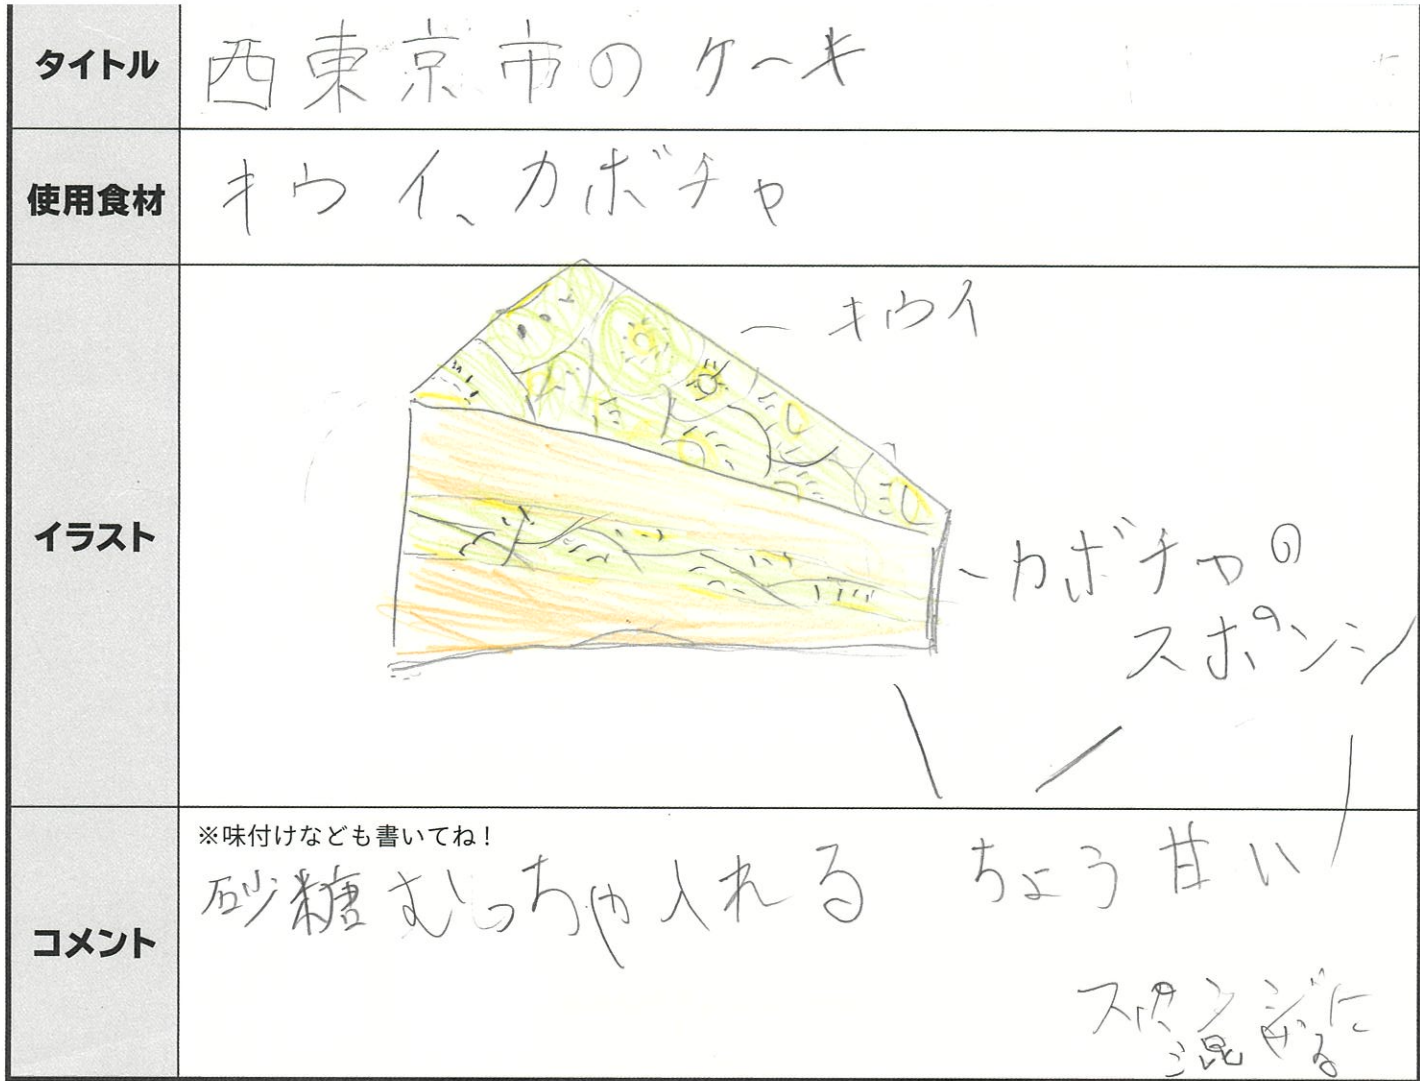 タイトル
西東京市のケーキ
使用食材
キウイ、カボチャ
イラスト
キウイ
カボチャの
スポンジ
コメント
※味付けなども書いてね！
砂糖むっちゃ入れる ちょう甘い
スポンジに
混ぜる